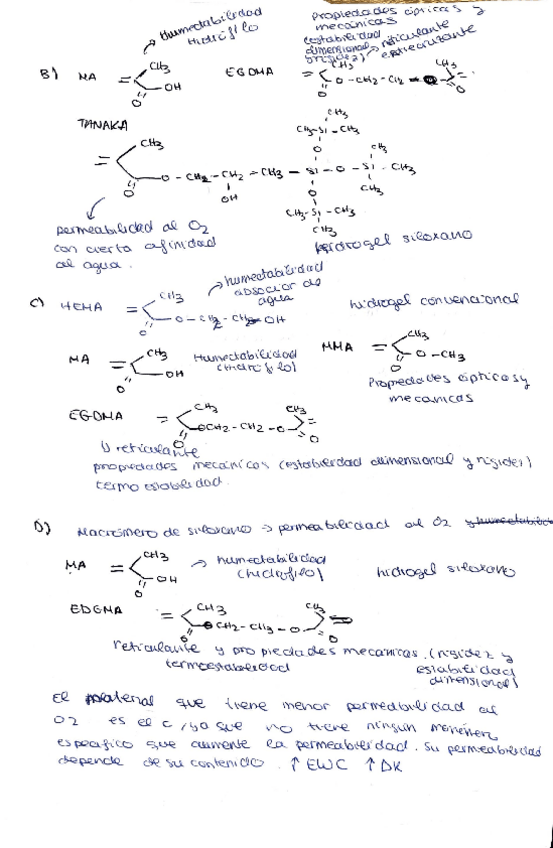 Humectabilidad
Hidrófilo
Propiedades ópticas y
mecánicas
(estabilidad
dimensional
rigidez) → reticulante
entrecruzante
B) MA = CH3 OH O
EGDMA = CH3 O - CH2 - O CH3 O
TANAKA
= CH3
O - CH2 - CH2 - CH3 - Si - O - Si - CH3
OH
CH3
CH3-Si-CH3
O
CH3
CH3
O
CH3-Si-CH3
CH3
permeabilidad al O2
con cierta afinidad
al agua.
hidrogel siloxano
C) HEMA = CH3 O - CH2 - CH2 OH
humectabilidad
absocior de
agua
hidrogel convencional
MA = CH3 OH O
Humectabilidad
(hidrófilo)
MMA = CH3 O - CH3 O
Propiedades ópticas y
mecanicas
EGDMA = CH3 OCH2 - CH2 - O CH3 = O
reticulante
propiedades mecánicas (estabilidad dimensional y rigidez)
termoestabilidad.
D) Macrómero de siloxano → permeabilidad al O2
MA = CH3 OH O
→ humectabilidad
(hidrófilo)
hidrogel siloxano
EDGMA = CH3 CH2 - CH3 - O CH3 O
reticulante y propiedades mecanicas (rigidez y
termoestabilidad
estabilidad
dimensional)
El material que tiene menor permeabilidad al
O2 es el c, ya que no tiene ningún
especifico que aumente la permeabilidad. Su permeabilidad
depende de su contenido. ↑ EWC ↑ DK